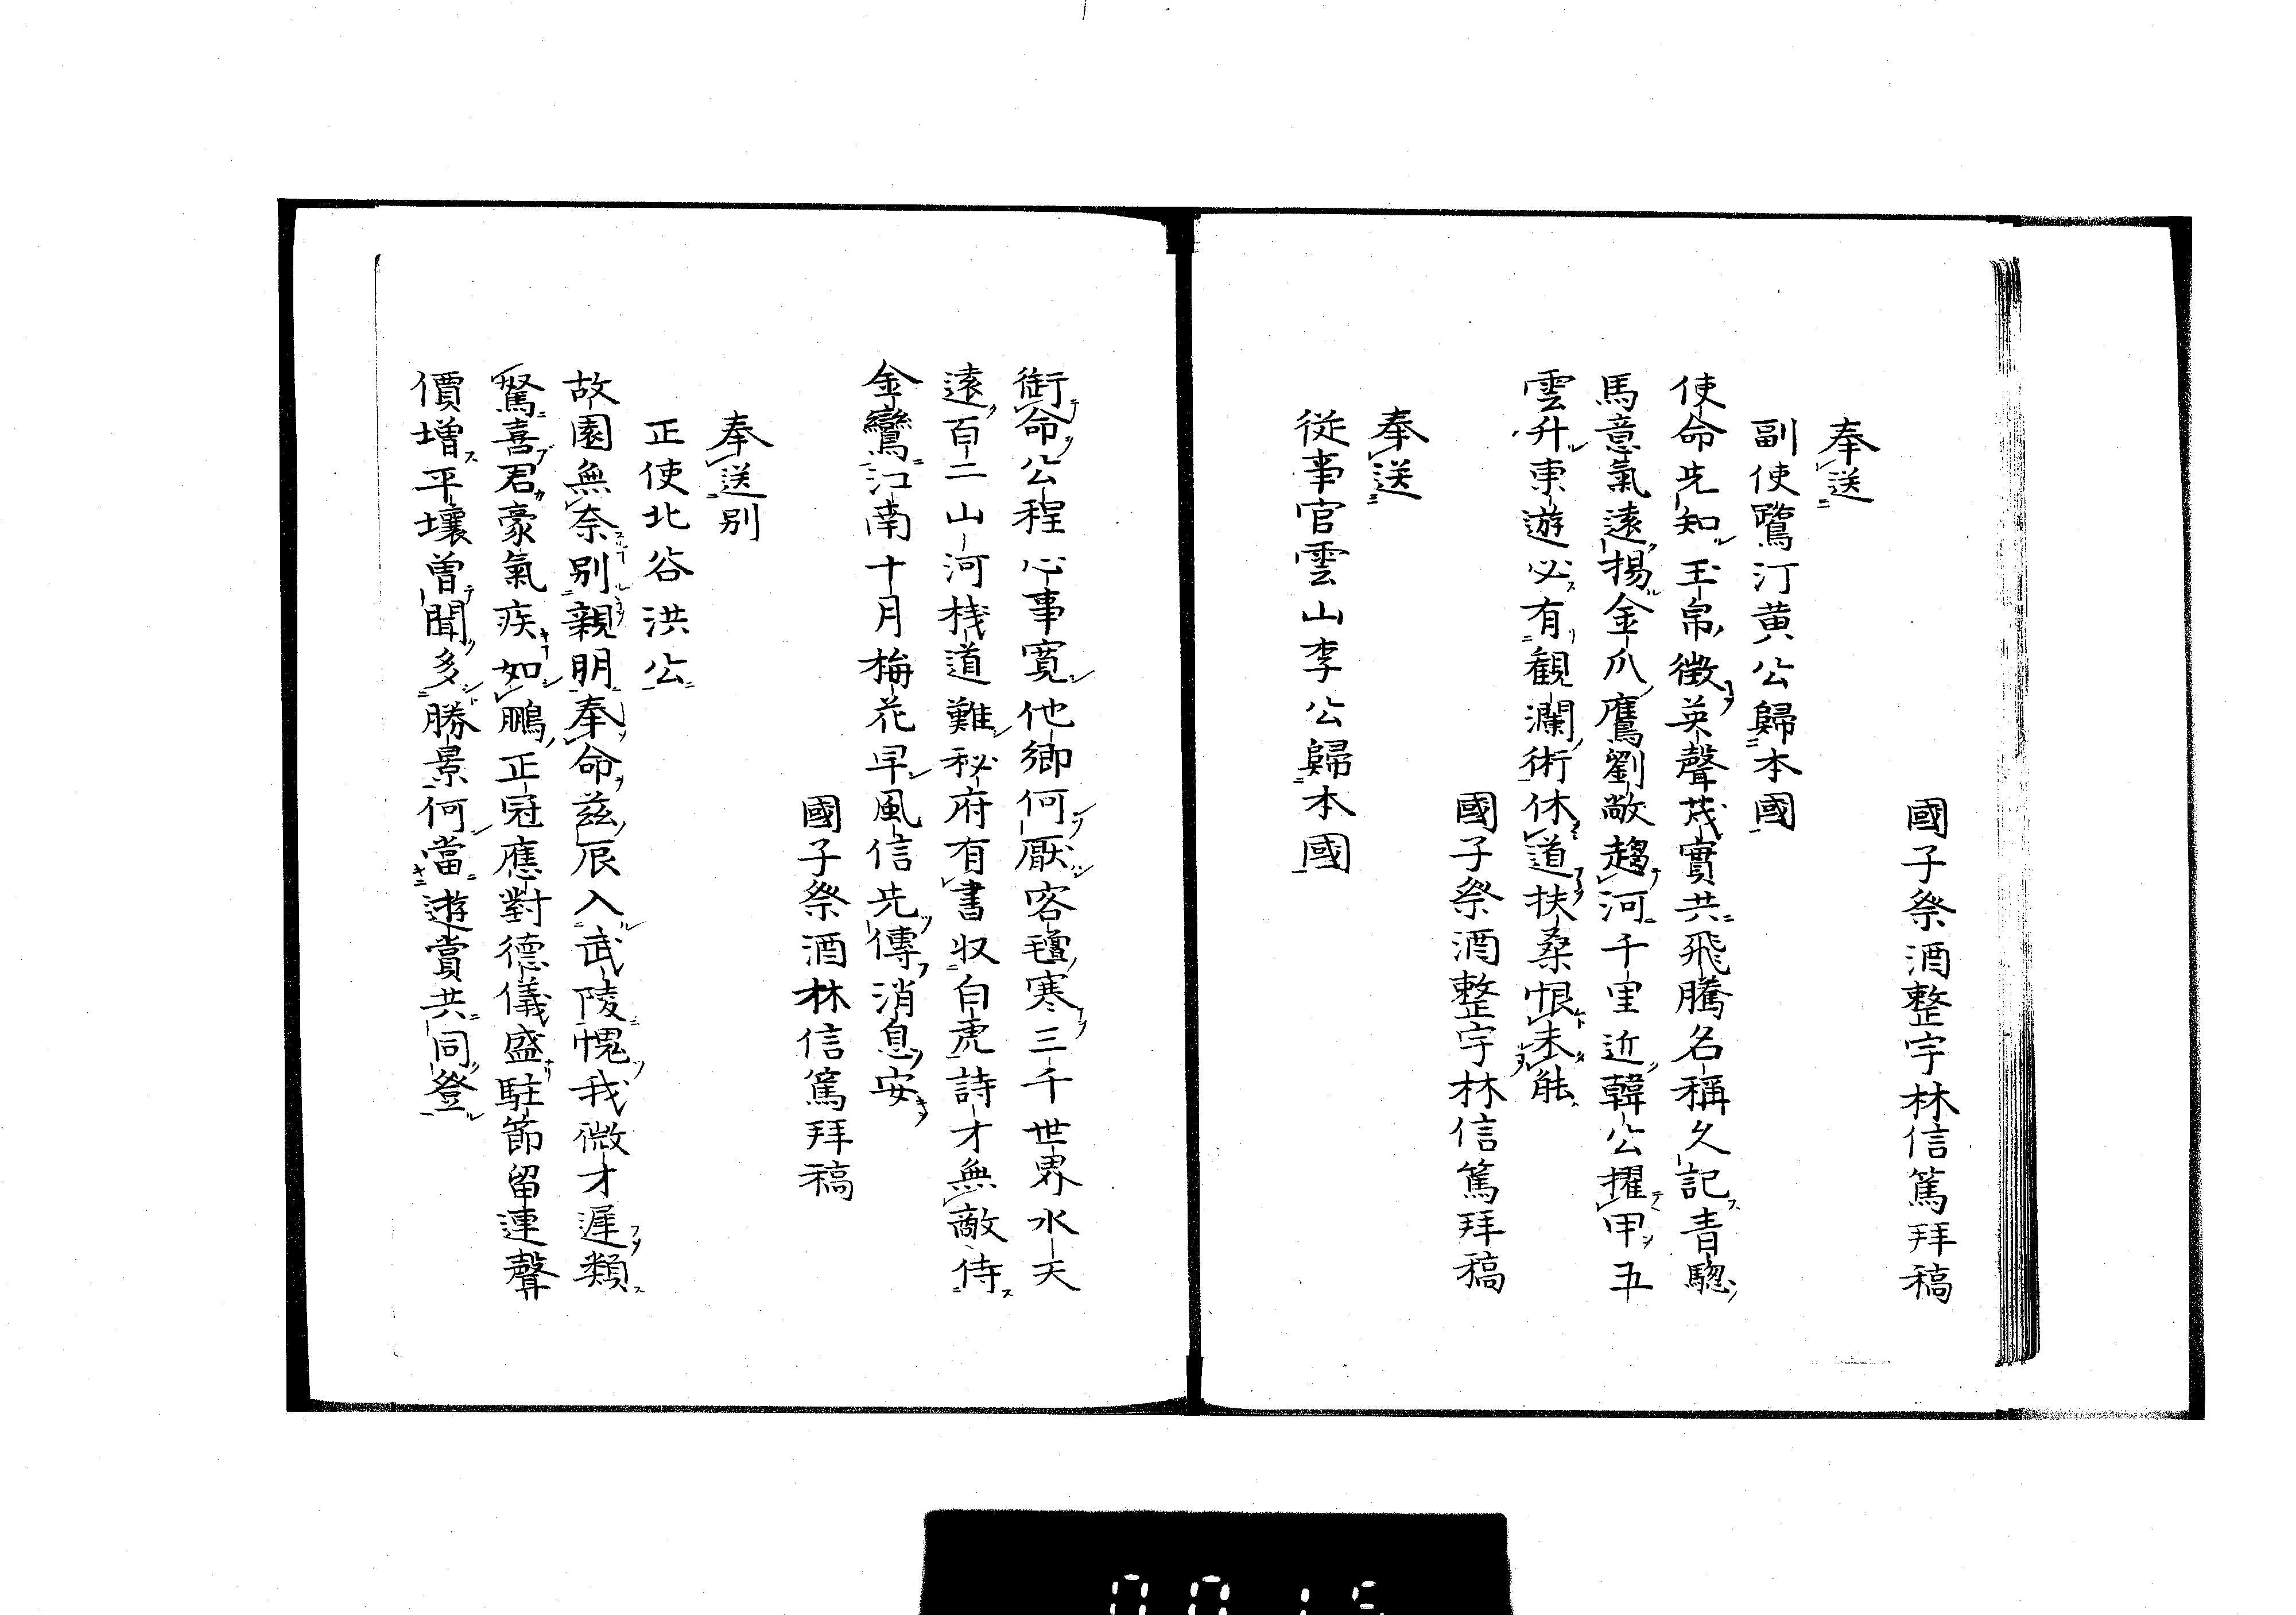 國子祭酒整宇林信篤拜稿
奉送
副使鷺汀黄公歸本國
使命先知玉帛徴英聲茂實共飛騰名稱久記青驄
馬意氣遠揚金爪鷹劉敞趨河千里近韓公擢甲五
雲升東遊必有観瀾術休道扶桑恨未能
國子祭酒整宇林信篤拜稿
奉送
従事官雲山李公歸本國
銜命公程心事寛他郷何厭客氊寒三千世界水天
遠百二山河桟道難秘府有書収白虎詩才無敵侍
金鸞江南十月梅花早風信先傳消息安
國子祭酒林信篤拜稿
奉送別
正使北谷洪公
故園無奈別親朋奉命兹辰入武陵愧我微才遅類
駑喜君豪氣疾如鵬正冠應對德儀盛駐節留連聲
價増平壤曽聞多勝景何當遊賞共同登
0015